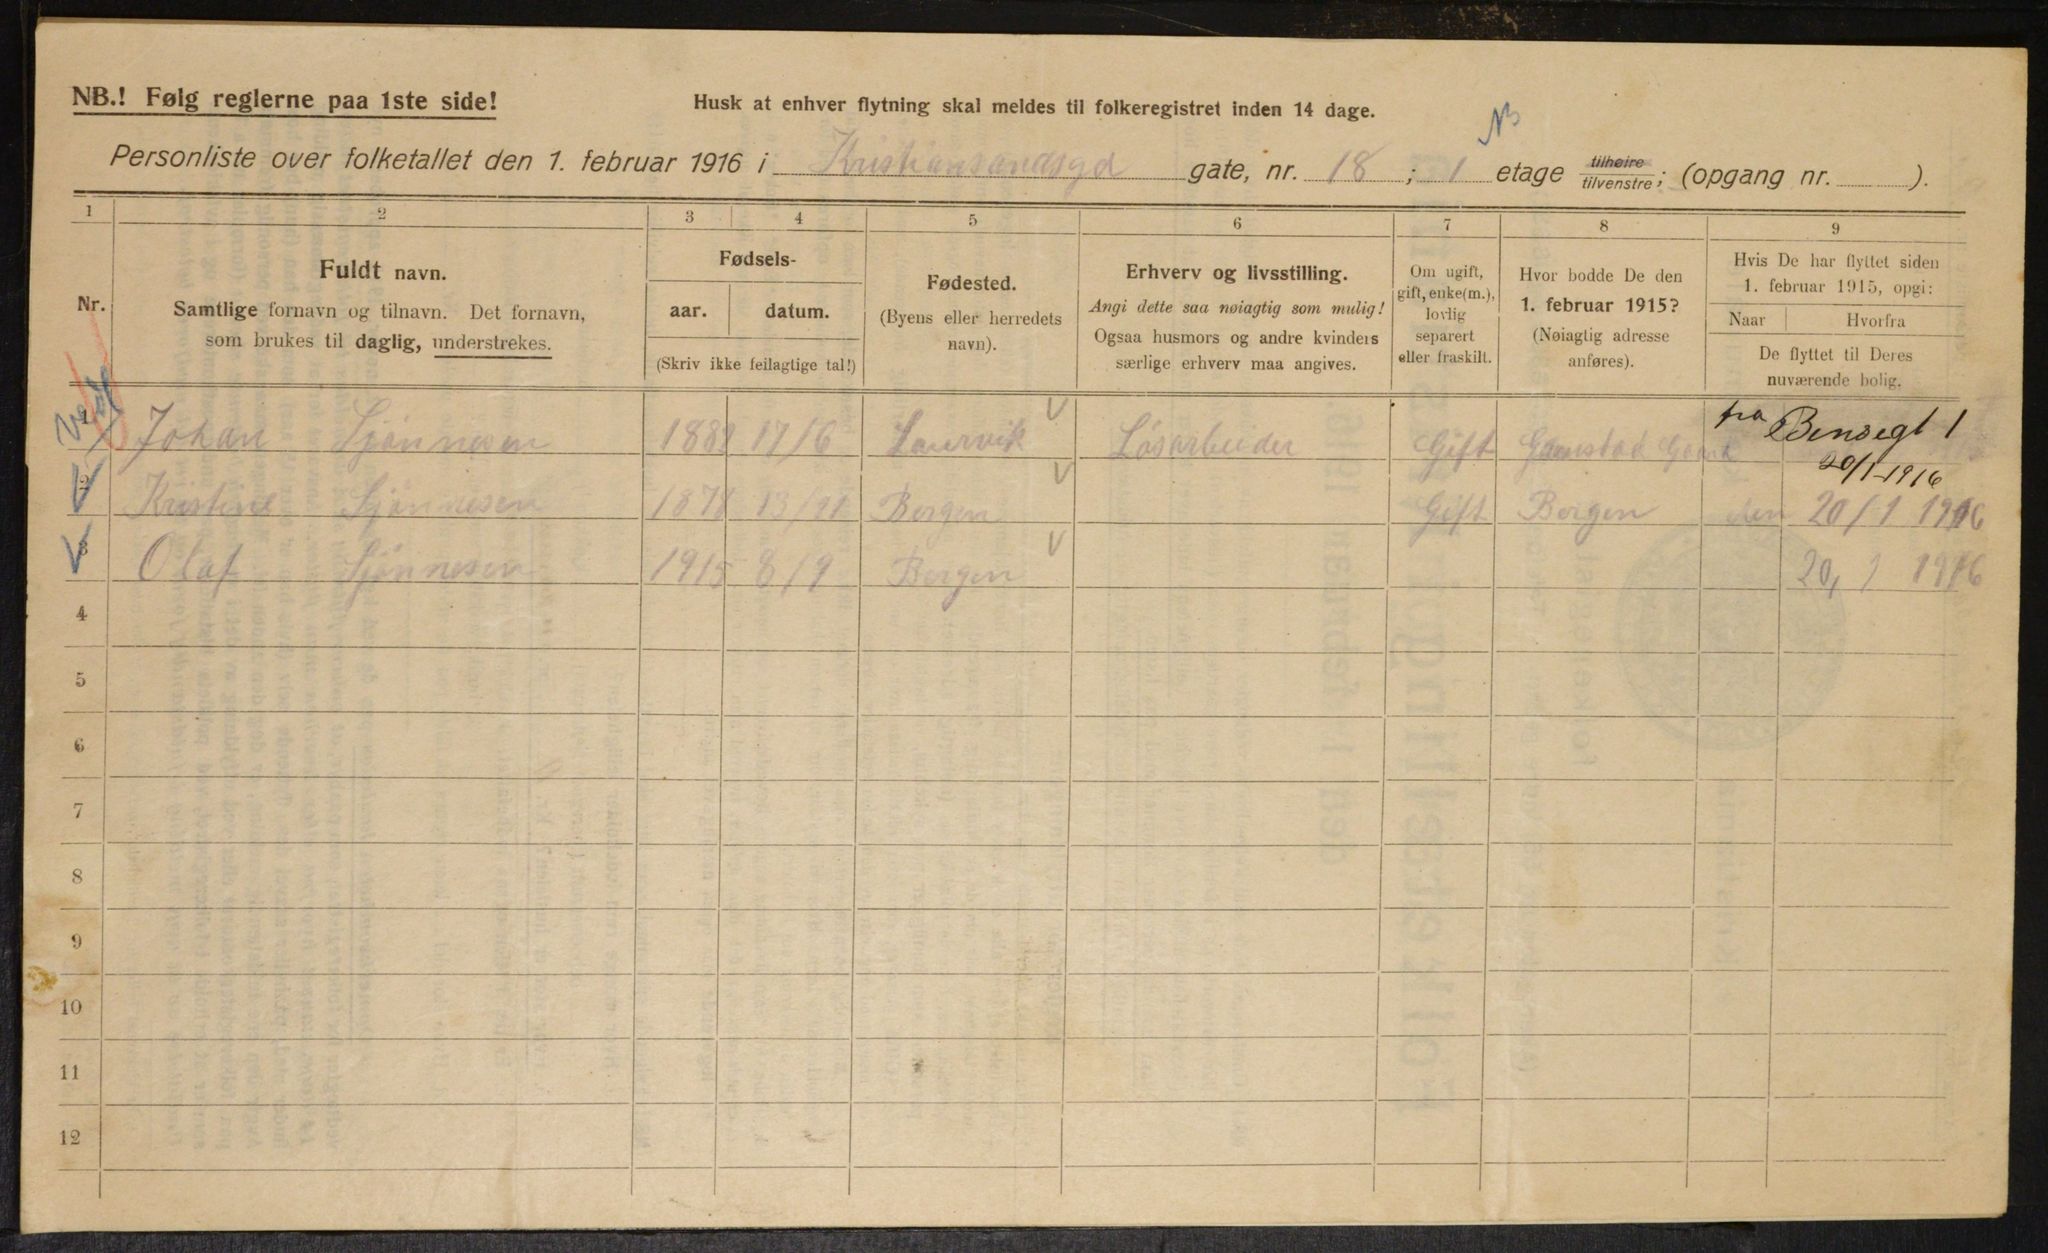 NB.! Følg reglerne paa 1ste side!
Husk at enhver flytning skal meldes til folkeregistret inden 14 dage.
Personliste over folketallet den 1. februar 1916 i Kristiansandsgd gate, nr. 18 ; 1 etage tilhøire/tilvenstre; (opgang nr. ).
1 2 3 4 5 6 7 8 9
Nr.
Fuldt navn.
Samtlige fornavn og tilnavn. Det fornavn,
som brukes til daglig, understrekes.
Fødsels-
aar. datum.
(Skriv ikke feilagtige tal!)
Fødested.
(Byens eller herredets
navn).
Erhverv og livsstilling.
Angi dette saa nøiagtig som mulig!
Ogsaa husmors og andre kvinders
særlige erhverv maa angives.
Om ugift,
gift, enke(m.),
lovlig
separert
eller fraskilt.
Hvor bodde De den
1. februar 1915?
(Nøiagtig adresse
anføres).
Hvis De har flyttet siden
1. februar 1915, opgi:
Naar Hvorfra
De flyttet til Deres
nuværende bolig.
1 Johan Sjønnesen 17/6 Laurvik Løsarbeider Gift Gaustad fra Bensegt 1
20/1-1916
2 Kristine Sjønnesen 1878 Bergen Gift Bergen den 20/1 1916
3 Olaf Sjønnesen 1915 8/9 Bergen 20/1 1916
4
5
6
7
8
9
10
11
12